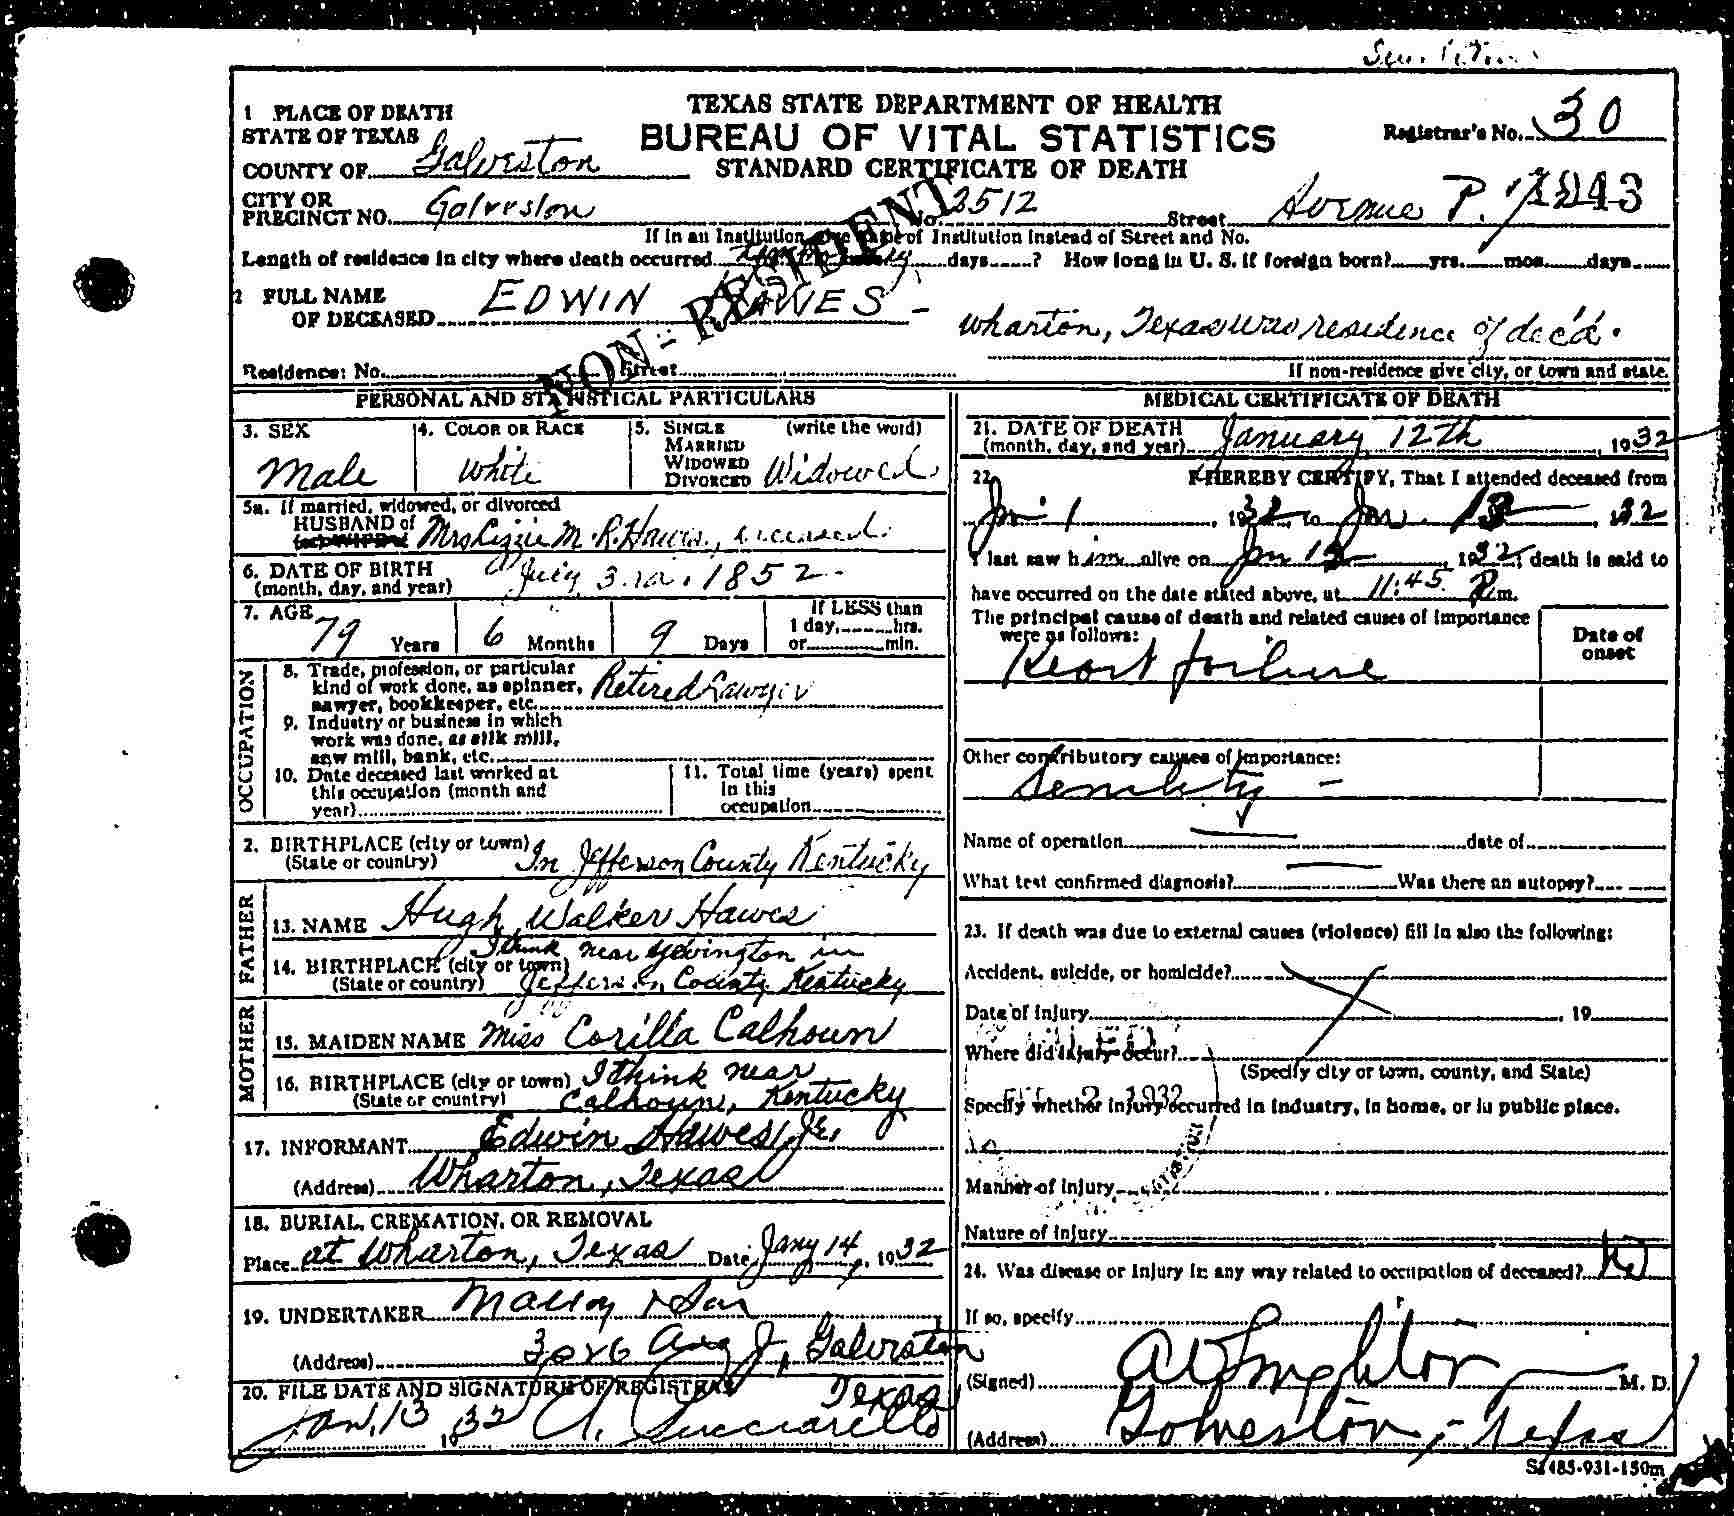 1 PLACE OF DEATH
STATE OF TEXAS
COUNTY OF Galveston
CITY OR
PRECINCT NO. Galveston
TEXAS STATE DEPARTMENT OF HEALTH
BUREAU OF VITAL STATISTICS
STANDARD CERTIFICATE OF DEATH
Registrar's No. 30
No. 3512 Street Avenue P.
If in an Institution, give name of Institution instead of Street and No.
Length of residence in city where death occurred days ? How long in U. S. if foreign born? yrs. mos. days
NON-RESIDENT
2 FULL NAME
OF DECEASED EDWIN HAWES -
Wharton, Texas was residence of dec'd.
Residence: No. Street
If non-residence give city, or town and state.
PERSONAL AND STATISTICAL PARTICULARS
3. SEX
Male
4. COLOR OR RACE
White
5. SINGLE
MARRIED
WIDOWED
DIVORCED
(write the word)
Widowed
5a. If married, widowed, or divorced
HUSBAND of
(or) WIFE of Mrs Lizzie M. R. Hawes, deceased.
6. DATE OF BIRTH
(month, day, and year) July 3rd. 1852
7. AGE
79 Years 6 Months 9 Days
If LESS than
1 day, hrs.
or min.
OCCUPATION
8. Trade, profession, or particular
kind of work done, as spinner,
sawyer, bookkeeper, etc. Retired Lawyer
9. Industry or business in which
work was done, as silk mill,
saw mill, bank, etc.
10. Date deceased last worked at
this occupation (month and
year)
11. Total time (years) spent
in this
occupation
2. BIRTHPLACE (city or town)
(State or country) In Jefferson County Kentucky
FATHER
13. NAME Hugh Walker Hawes
14. BIRTHPLACE (city or town)
(State or country)
I think near Yelvington in
Jefferson County Kentucky
MOTHER
15. MAIDEN NAME Miss Corilla Calhoun
16. BIRTHPLACE (city or town) I think near
(State or country) Calhoun, Kentucky
17. INFORMANT Edwin Hawes, Jr.
(Address) Wharton, Texas
18. BURIAL, CREMATION, OR REMOVAL
Place at Wharton, Texas Date Jany 14, 1932
19. UNDERTAKER Malloy & Son
(Address) 3026 Ave J, Galveston
Texas
20. FILE DATE AND SIGNATURE OF REGISTRAR
Jan. 13, 1932
MEDICAL CERTIFICATE OF DEATH
21. DATE OF DEATH
(month, day, and year) January 12th 1932
22. I HEREBY CERTIFY, That I attended deceased from
Jan 1, 1932, to Jan. 12, 1932
I last saw him alive on Jan 12 1932, death is said to
have occurred on the date stated above, at 11:45 P.m.
The principal cause of death and related causes of importance
were as follows:
Date of
onset
Heart failure
Other contributory causes of importance:
Senility -
Name of operation date of
What test confirmed diagnosis? Was there an autopsy?
23. If death was due to external causes (violence) fill in also the following:
Accident, suicide, or homicide?
Date of injury , 19
Where did injury occur?
(Specify city or town, county, and State)
Specify whether injury occurred in industry, in home, or in public place.
FILED
2 1932
Manner of injury
Nature of injury
24. Was disease or injury in any way related to occupation of deceased? No
If so, specify
(Signed) M. D.
(Address) Galveston, Texas